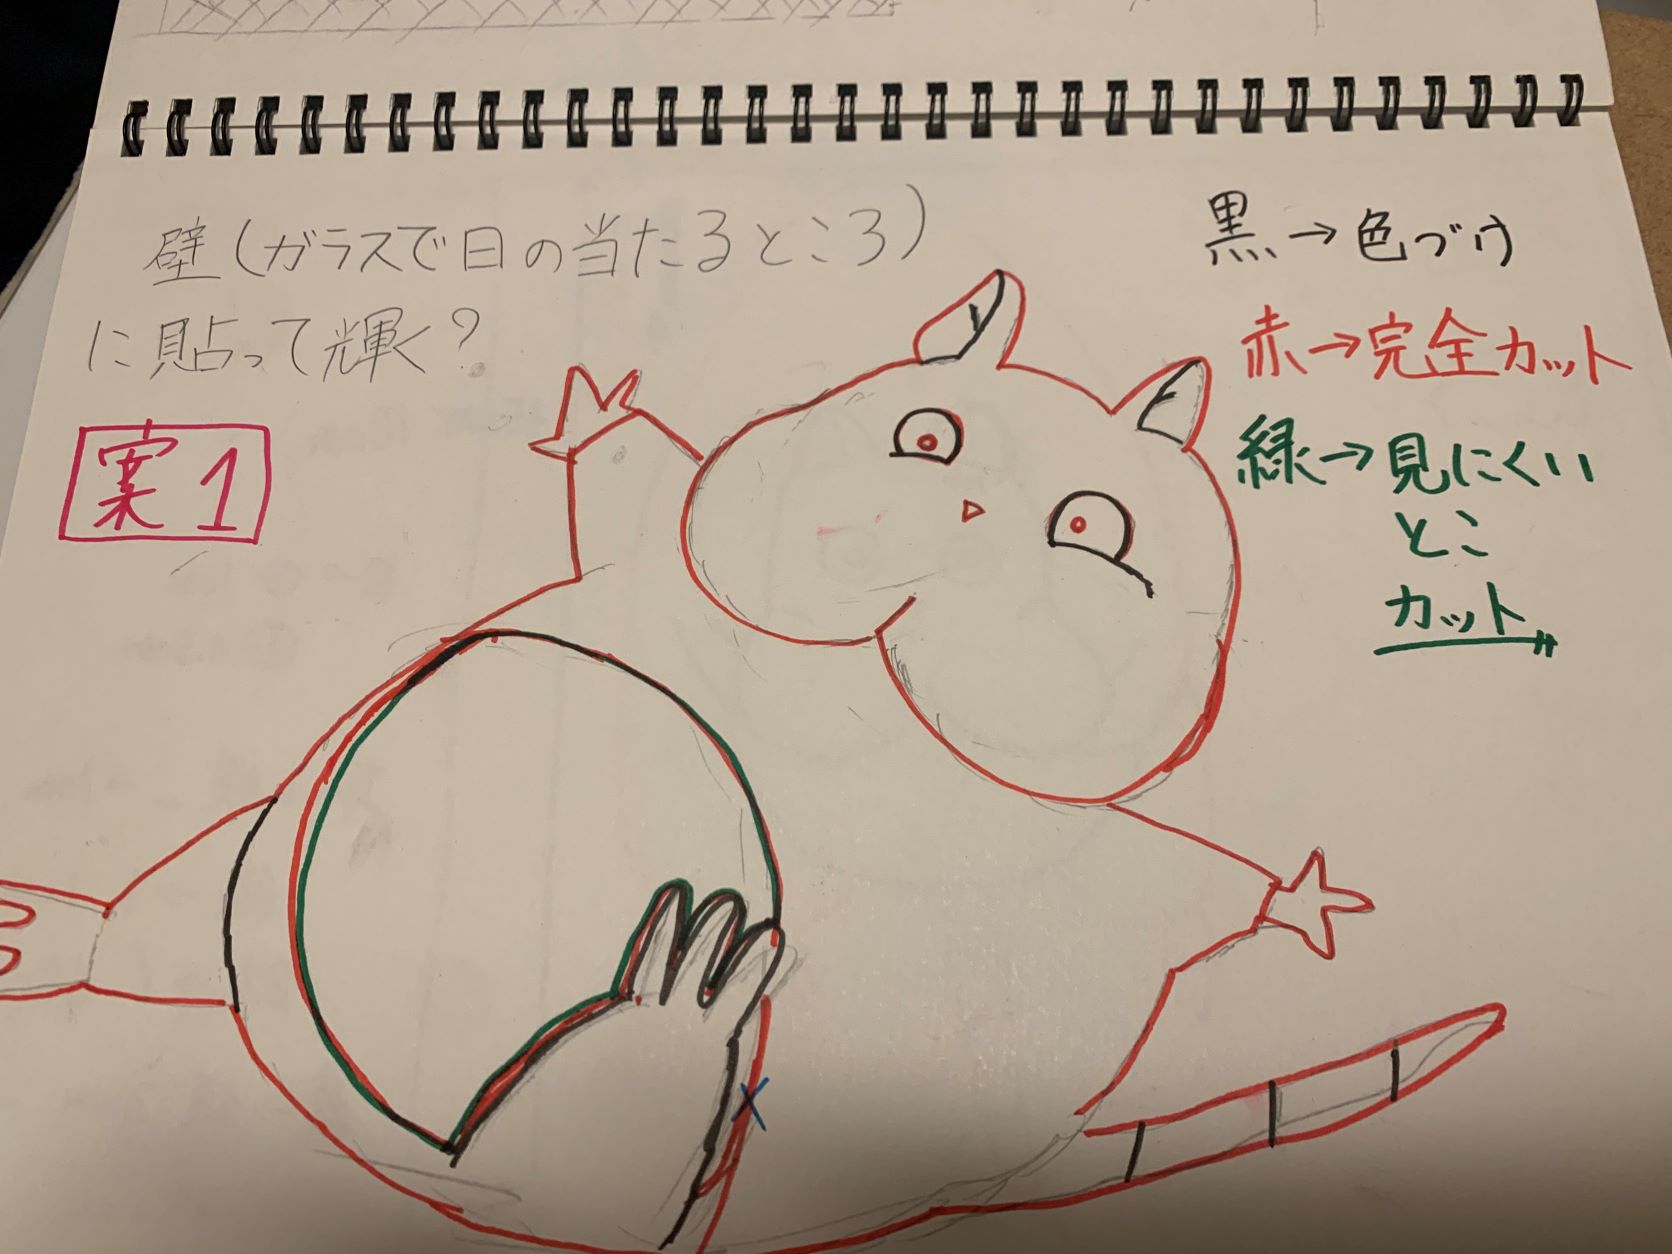 壁(ガラスで日の当たるところ)
に貼って輝く?
案1
黒→色づけ
赤→完全カット
緑→見にくい
とこ
カット